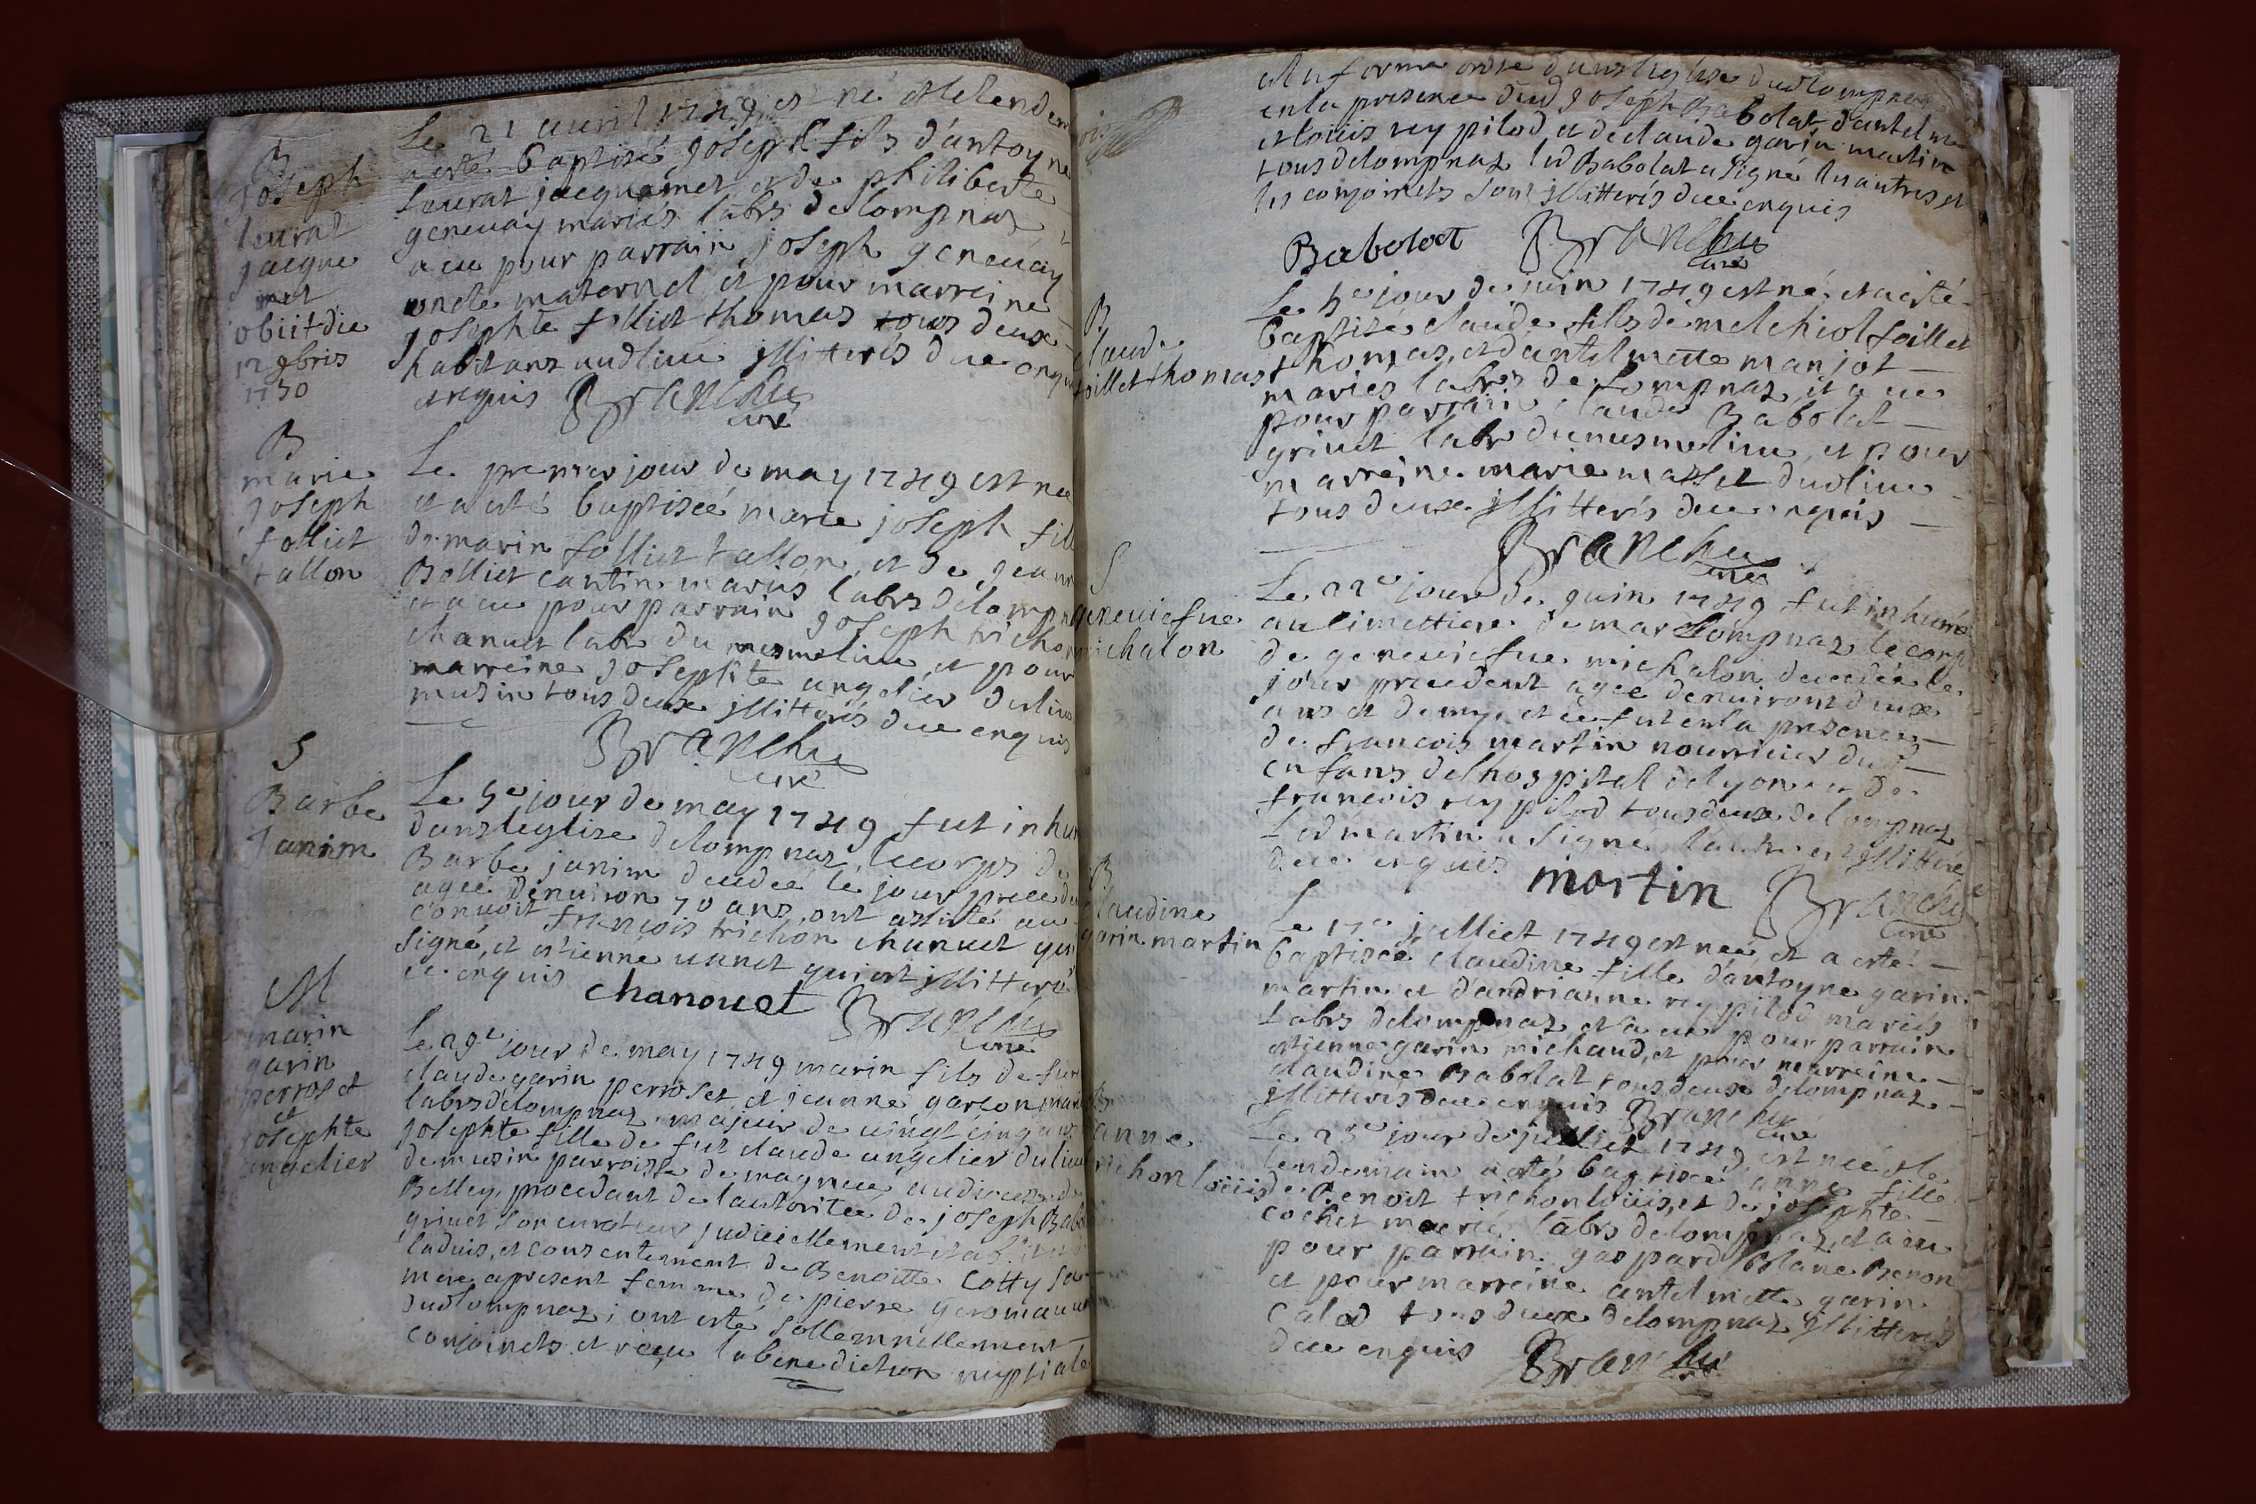 B
Joseph
leurat
jacque
met
obiit die
12 9bris
1750
Le 21 auril 1749 est né et le lendem
a esté baptisé joseph fils d'antoyne
leurat jacquemet et de philiberte
geneuay mariés labrs de lompnaz
a eu pour parrain joseph geneuay
oncle maternel et pour marreine
josephte folliet thomas tous deux
habitans audlieu illitterés de ce enquis
et requis Branchu
curé
B
marie
joseph
folliet
tallon
Le premier jour de may 1749 est née
et a esté baptisée marie joseph fill
de marin folliet tallon, et de jeann
Bolliet cantin mariés labrs de lompn
et a eu pour parrain joseph tricho
chanuet labr du mesme lieu et pour
marreine josephte angelier du lieu
musin tous deux illitterés de ce enquis
Branchu
curé
S
Barbe
Janim
Le 5e jour de may 1749 fut inhu
dans leglise de lompnaz le corps de
Barbe janim decedeé le jour precede
ageé d'enuiron 70 ans, ont assisté au
conuoit françois trichon chanuet qui
signé, et estienne uanet qui est illitteré
ce enquis chanouet Branchu
curé
M
marin
garin
perroset
et
josephte
angelier
Le 29e jour de may 1749 marin fils de fut
claude garin perroset et jeanne garson marié
labrs de lompnaz, majeur de uingt cinq ans
josephte fille de fut claude angelier du lieu
de musin parroisse de magneu audiocese de
Belley, procedant de lautoritée de joseph Babo
griuet son curateur judiciellement etabl
laduis, et consentement de Benoitte Cotty sa
mere apresent femme de pierre
dudlompnaz; ont esté sollemnellement
conjoincts et reçeu la benediction nuptiale
en la forme ordre dans leglise dudlompnaz
en la presence dud joseph Babolat d'antelme
et loüis rey pilod et de claude garin martin
tous de lompnaz led Babolat a signé les autres et
les conjoincts sont illitterés de ce enquis
Babolat Branchu
curé
B
claude
foillet thomas
Le 5e jour de juin 1749 est né, et a esté
baptisé claude fils de melchiol foillet
thomas, et d'antelmette manjot
mariés labrs de lompnaz, et a eu
pour parrain claude Babolat
griuet labr du mesme lieu, et pour
marreine marie masset dudlieu
tous deux illitterés de ce enquis
Branchu
curé
S
geneuiefue
michalon
Le 22e jour de juin 1749 fut inhumé
au cimettiere de lompnaz le corp
de geneuiefue michalon decedée le
jour precedent agée denuiront deux
ans et demy, et ce fut en la presence
de francois martin nourricier du d
enfans de lhospital de lyon et de
francois rey pilod tous deux de lompnaz
Led martin a signé lautre est illitteré
de ce enquis martin Branchu
curé
B
claudine
garin martin
Le 17e julliet 1749 est neé et a esté
baptisée claudine fille d'antoyne garin
martin et d'andrianne rey pilod mariés
labrs de lompnaz, et a eu pour parrain
estienne garin michaud, et pour marreine
claudine Babolat tous deux de lompnaz
illitterés de ce enquis Branchu
curé
B
anne
trichon loüis
Le 25e jour de julliet 1749 est neé et le
lendemain a esté baptisée anne fille
de Benoit trichon loüis, et de josephte
cochet mariés labrs de lompnaz, et a eu
pour parrain gaspard Blanc Benon
et pour marreine antelmette garin
calod tous deux de lompnaz illitterés
de ce enquis Branchu
curé